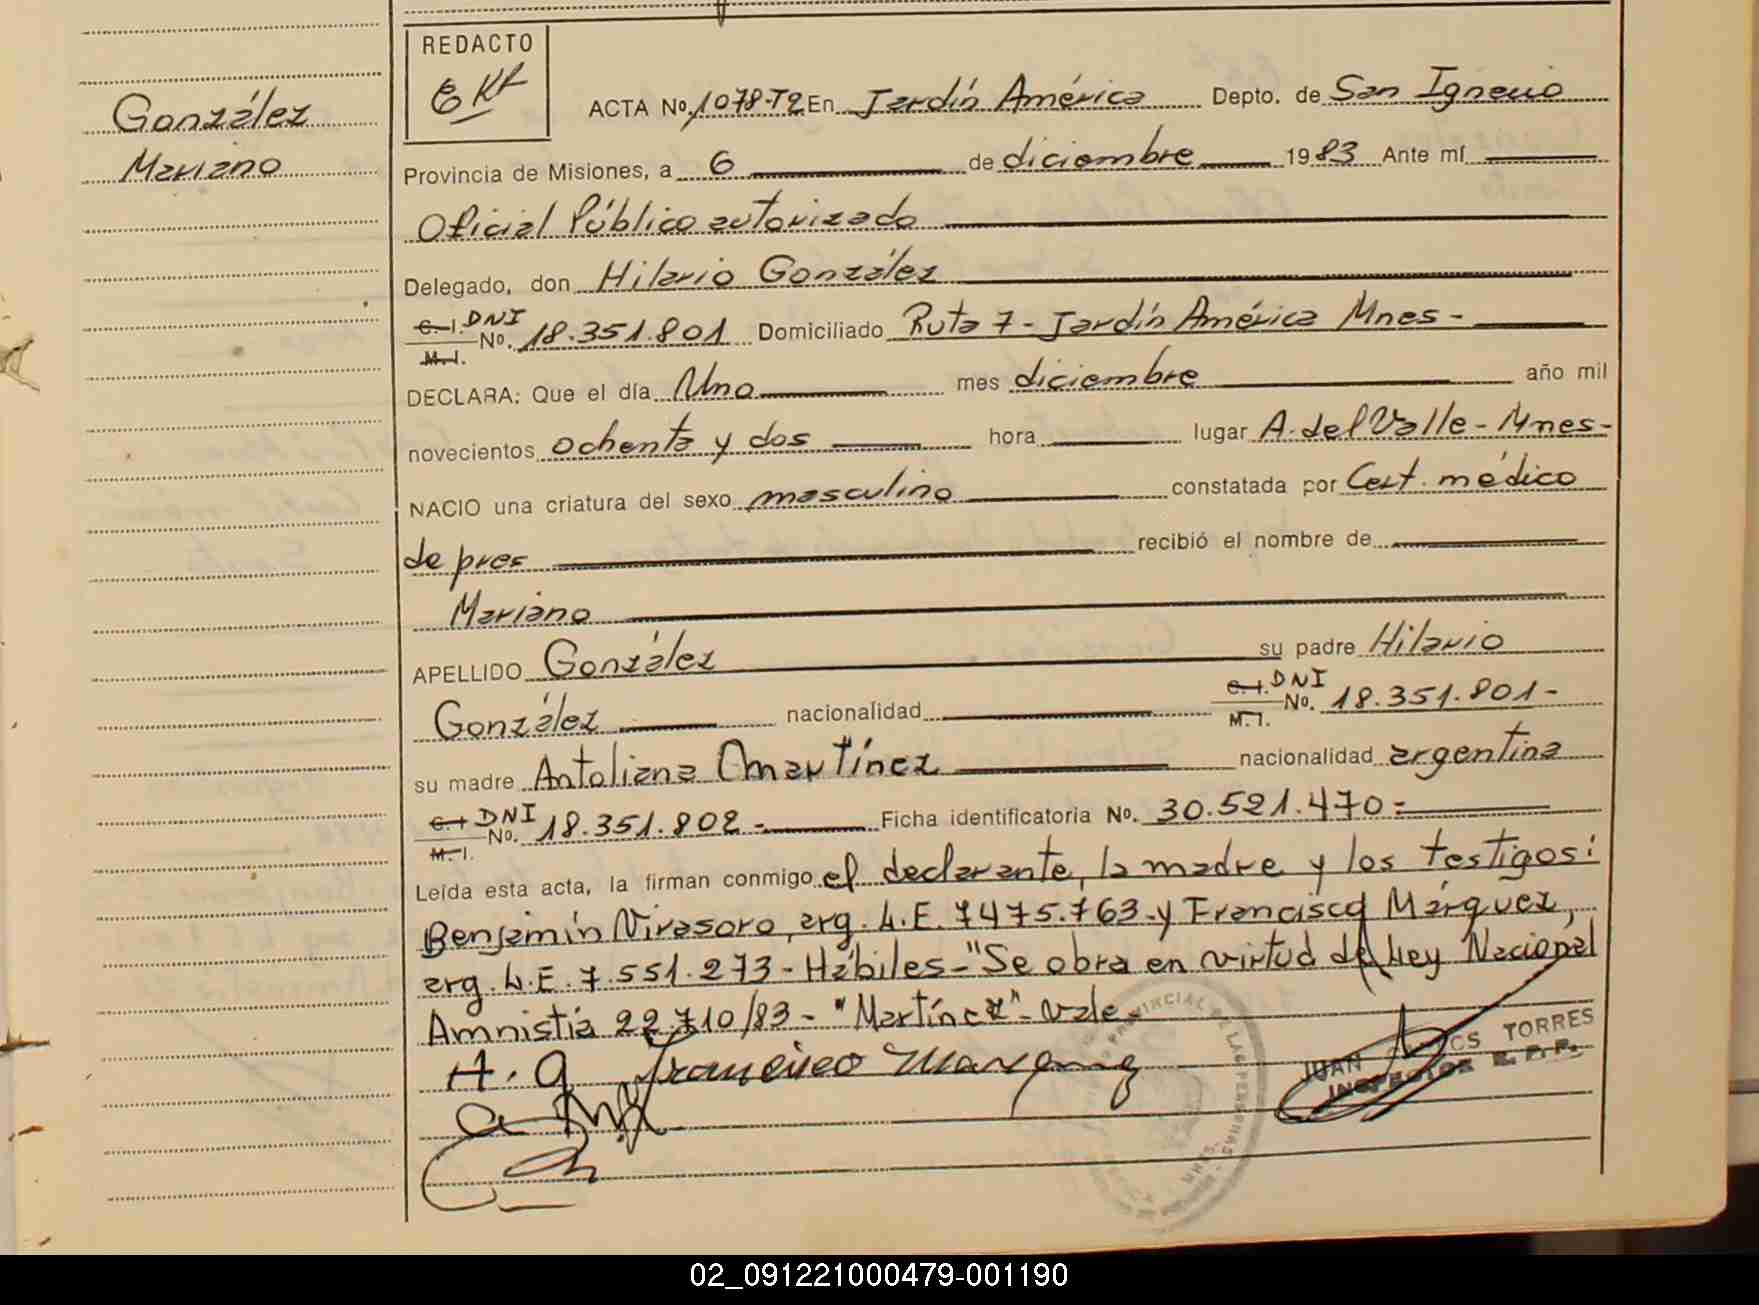 González
Mariano
REDACTO
ACTA No. 1078-T2 En Jardín América Depto. de San Ignacio
Provincia de Misiones, a 6 de diciembre 1983 Ante mí
Oficial Público autorizado
Delegado, don Hilario González
C. I. DNI
M. I. No. 18.351.801 Domiciliado Ruta 7 - Jardín América Mnes -
DECLARA: Que el día Uno mes diciembre año mil
novecientos ochenta y dos hora lugar A. del Valle - Mnes -
NACIO una criatura del sexo masculino constatada por Cert. médico
de pres recibió el nombre de
Mariano
APELLIDO González su padre Hilario
González nacionalidad C. I. DNI M. I. No. 18.351.801 -
su madre Antoliana Martínez nacionalidad argentina
C. I. DNI M. I. No. 18.351.802 - Ficha identificatoria No. 30.521.470 =
Leída esta acta, la firman conmigo el declarante, la madre y los testigos:
Benjamín Virasoro, arg. L.E. 7475.763 - y Francisco Márquez,
arg. L.E. 7.551.273 - Hábiles - "Se obra en virtud de Ley Nacional
Amnistía 22.710/83 - "Martínez" - Vale -
H. G Francisco
JUAN TORRES
INSPECTOR R. P. P.
PROVINCIAL DE LAS PERSONAS
MNES.
02_091221000479-001190